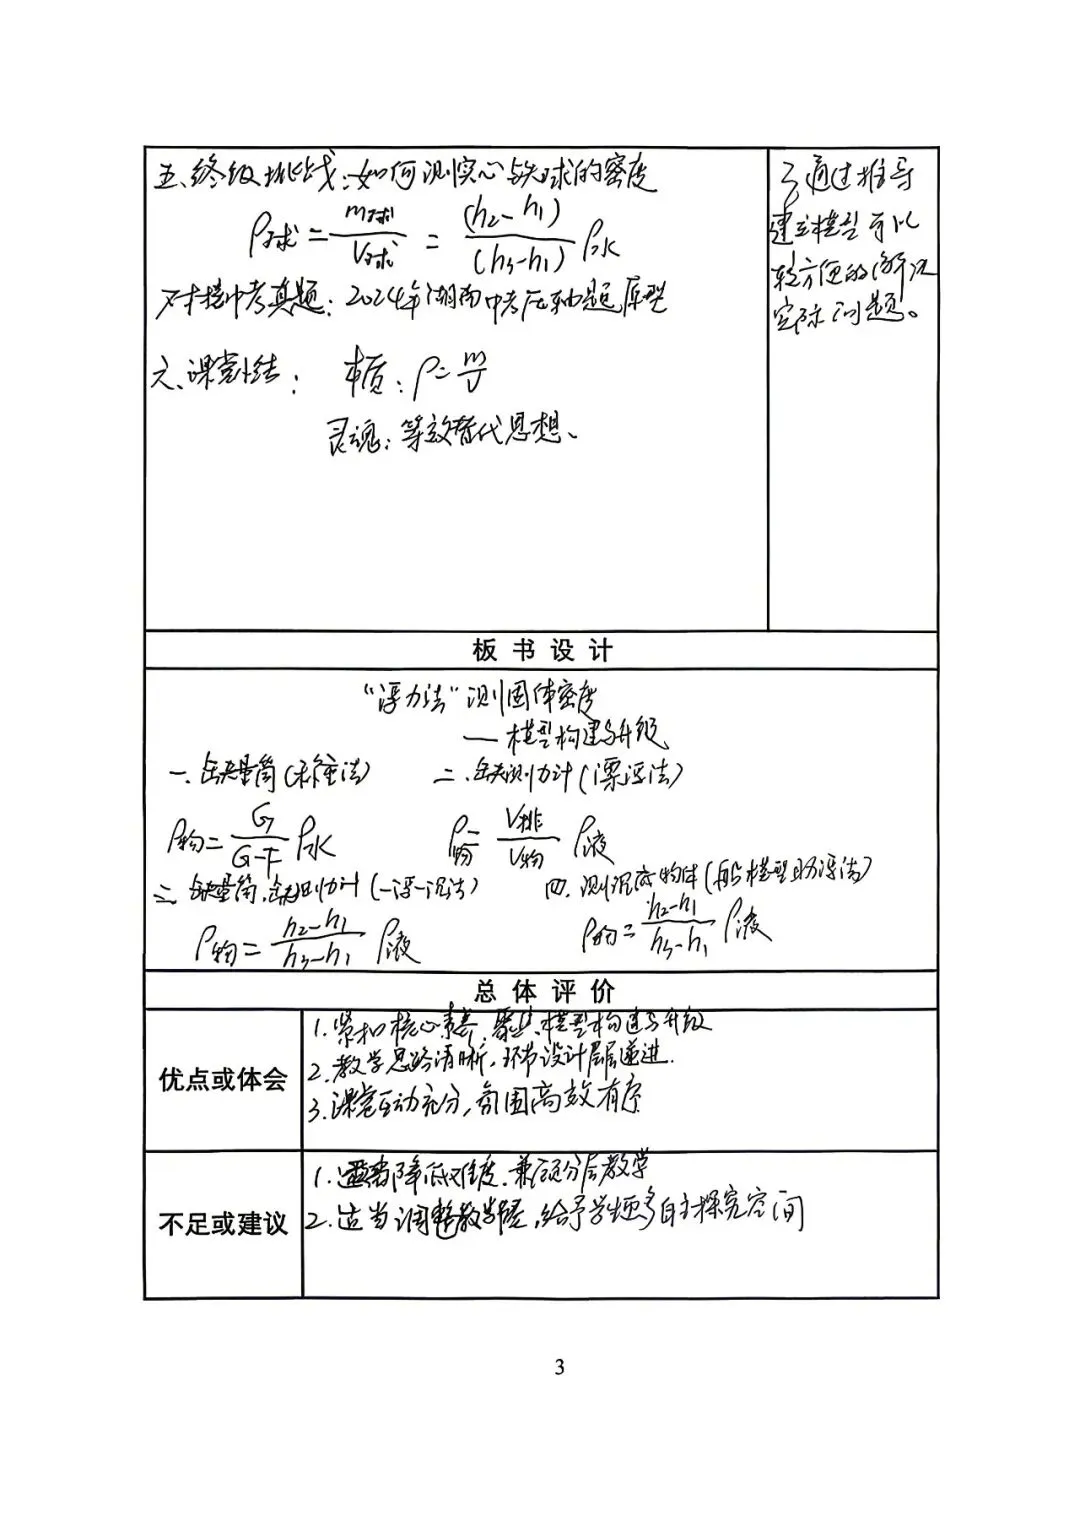 五、终极挑战:如何测实心铁球的密度
ρ球 = m球/V球 = (h₂-h₁)/(h₃-h₁) ρ水
对接中考真题:2024年湖南中考压轴题原型
六、课堂小结: 本质:ρ=m/V
灵魂:等效替代思想、
3 通过推导
建立模型可以
较方便的解决
实际问题。
板书设计
“浮力法”测固体密度
——模型构建与升级
一、缺量筒(称重法) 二、缺测力计(漂浮法)
ρ物=G/(G-F) ρ水 ρ物=V排/V物 ρ液
三、缺量筒、缺测力计(一漂一沉法) 四、测沉底物体(船模型助浮法)
ρ物=(h₂-h₁)/(h₃-h₁) ρ液 ρ物=(h₂-h₁)/(h₃-h₁) ρ液
总体评价
优点或体会
1.紧扣核心素养,聚焦模型构建与升级
2.教学思路清晰,环节设计层层递进.
3.课堂互动充分,氛围高效有序
不足或建议
1.适当降低难度,兼顾分层教学
2.适当调整教学,给予学生更多自主探究空间
3